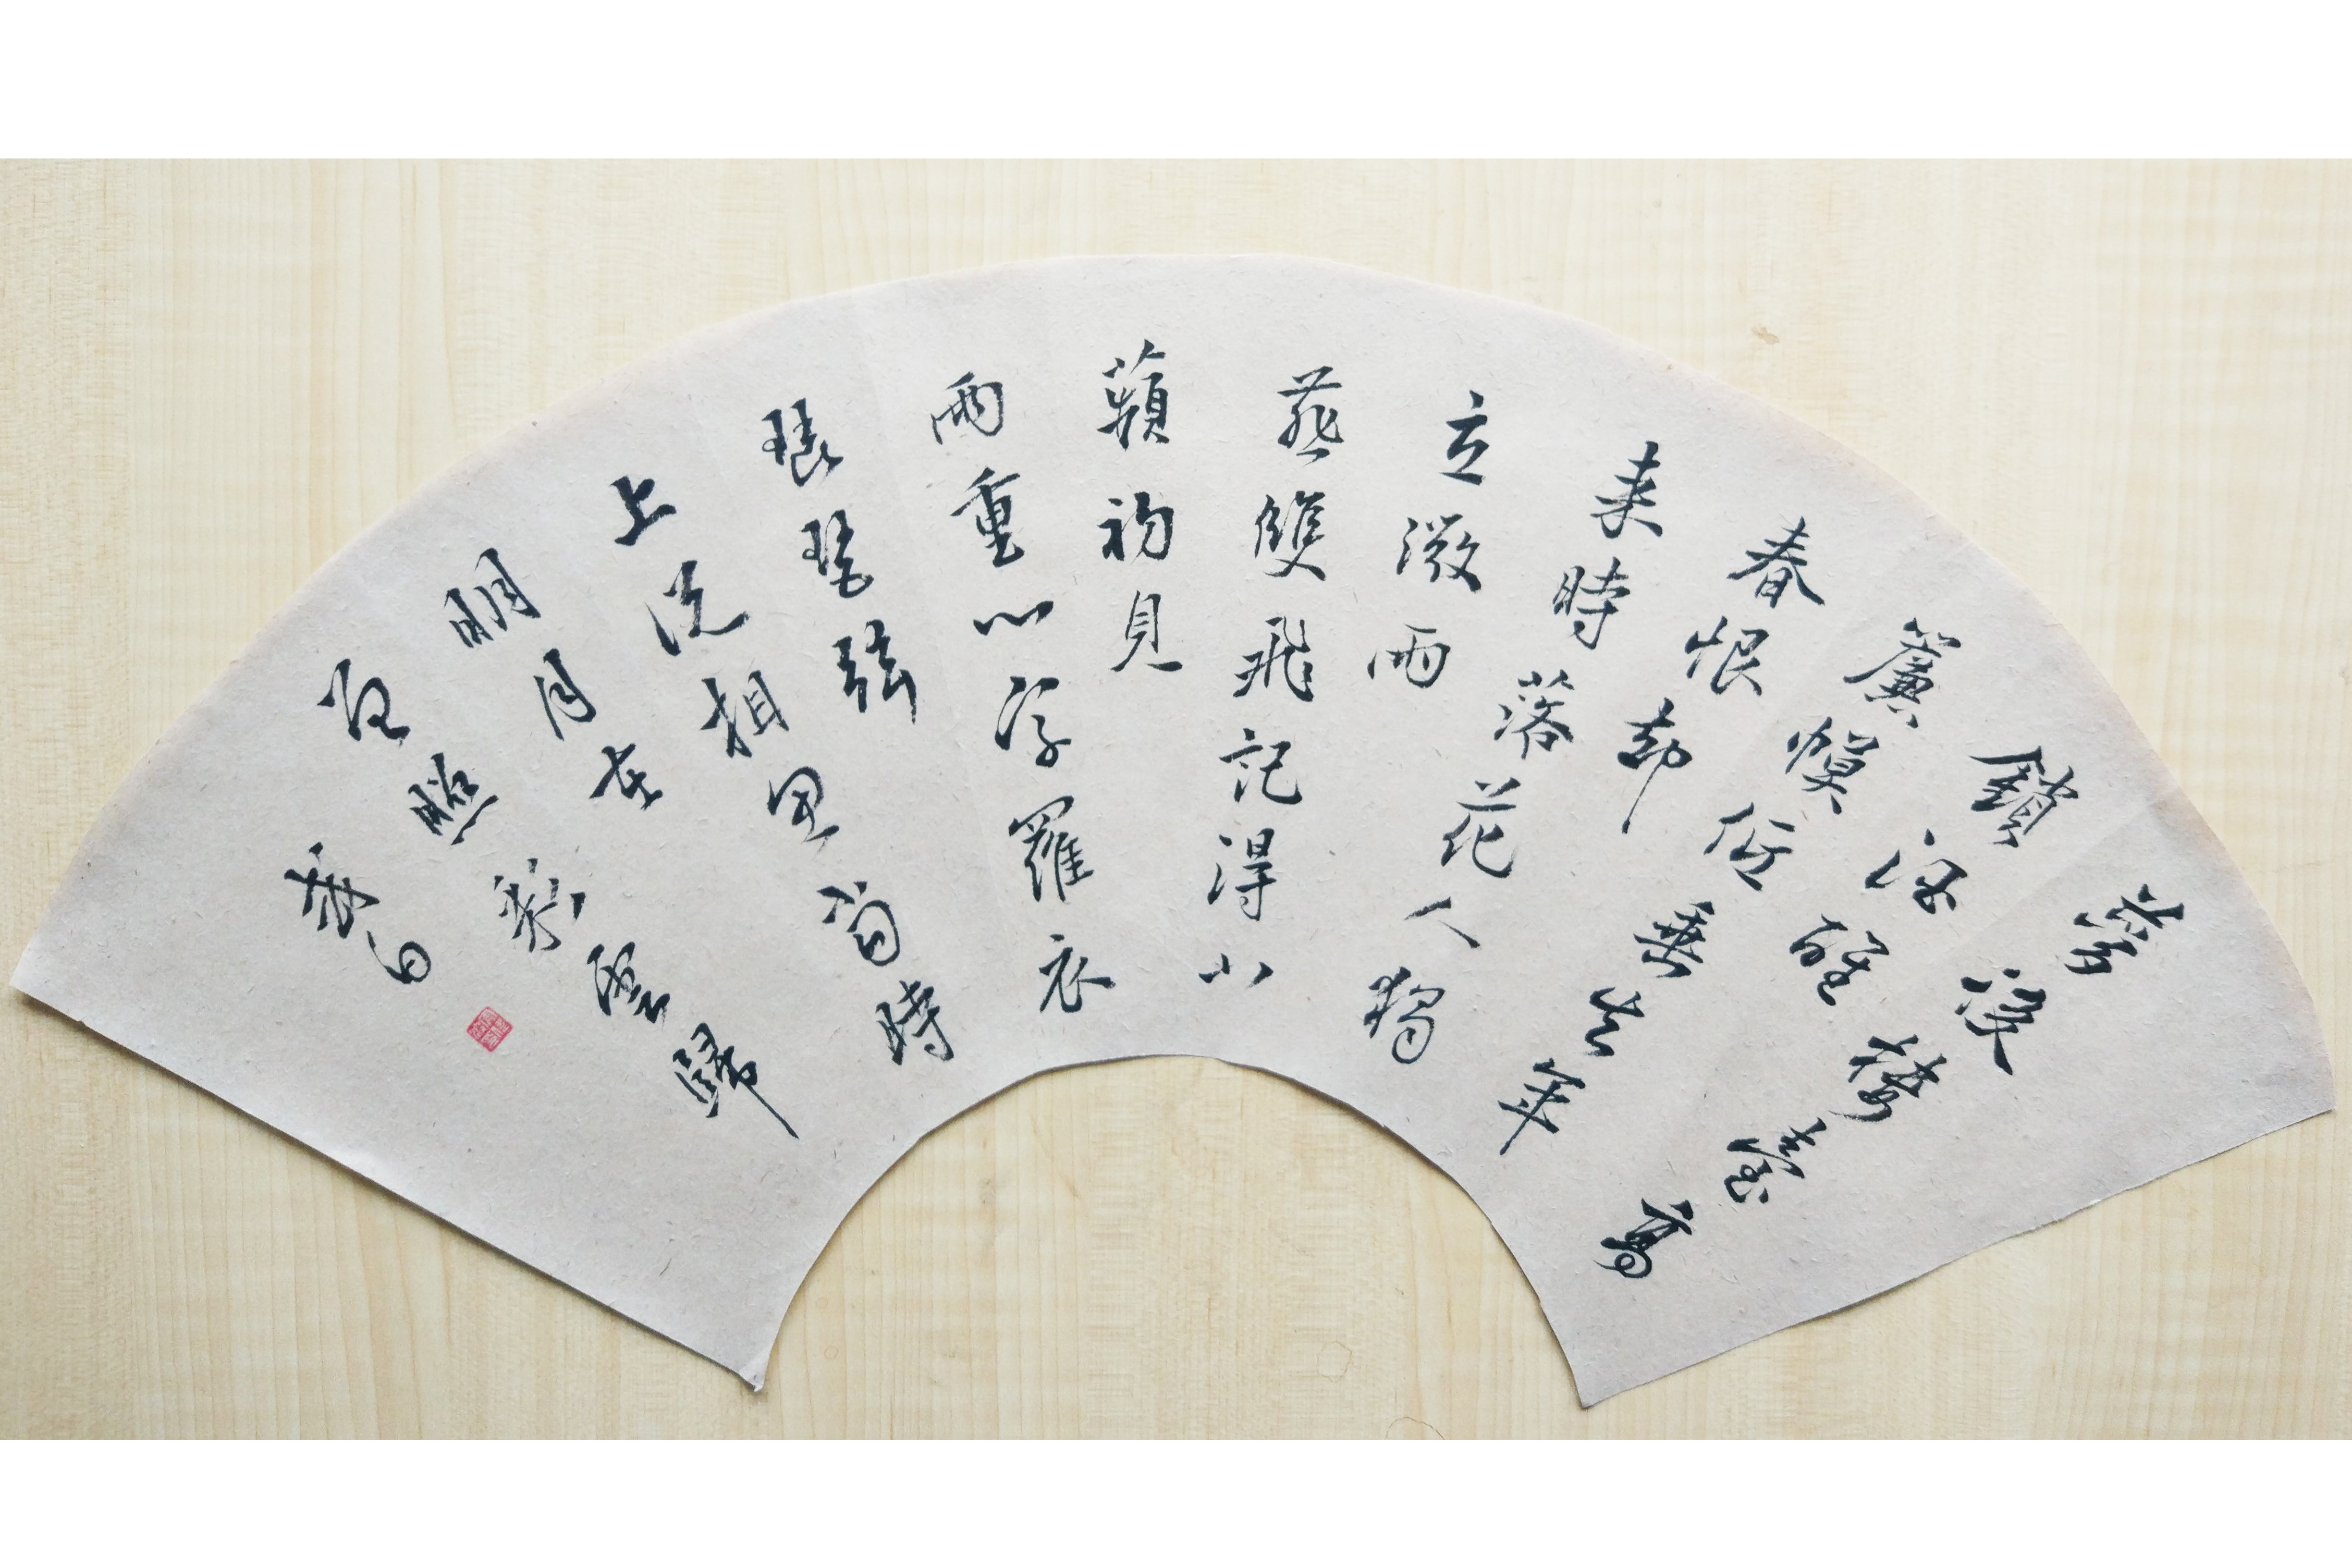 夢後樓臺高
鎖酒醒
簾幙低垂去年
春恨却
来時落花人獨
立微雨
燕雙飛記得小
蘋初見
兩重心字羅衣
琵琶弦
上說相思當時
明月在
曾照彩雲歸